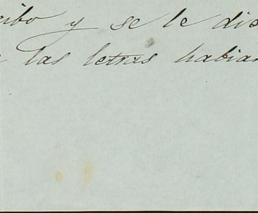 cibo y se le dic
las letras habian